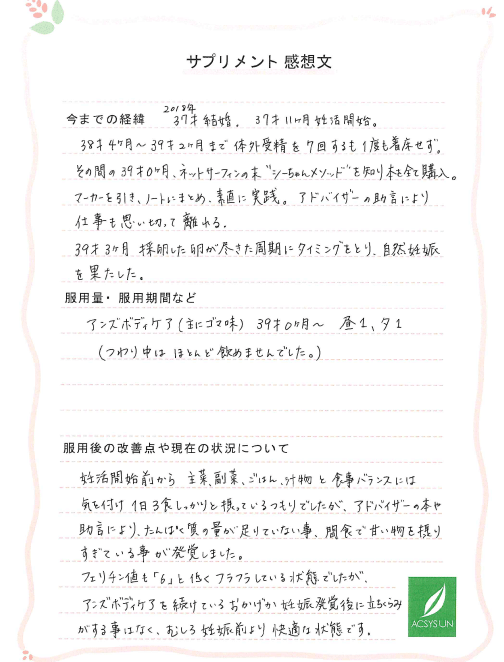 サプリメント 感想文
2018年
今までの経緯　37才 結婚。 37才11ヶ月 妊活開始。
38才4ヶ月〜39才2ヶ月まで 体外受精を7回するも1度も着床せず。
その間の39才0ヶ月、ネットサーフィンの末"シーちゃんメソッド"を知り本を全て購入。
マーカーを引き、ノートにまとめ、素直に実践。 アドバイザーの助言により
仕事も思い切って離れる。
39才3ヶ月 採卵した卵が尽きた周期にタイミングをとり、自然妊娠
を果たした。
服用量・服用期間など
アンズボディケア(主にゴマ味) 39才0ヶ月〜 昼1、夕1
(つわり中は ほとんど飲めませんでした。)
服用後の改善点や現在の状況について
妊活開始前から 主菜、副菜、ごはん、汁物と食事バランスには
気を付け 1日3食しっかりと摂っているつもりでしたが、アドバイザーの本や
助言により、たんぱく質の量が足りていない事、間食で甘い物を摂り
すぎている事が発覚しました。
フェリチン値も「6」と低くフラフラしている状態でしたが、
アンズボディケアを続けているおかげか 妊娠発覚後に立ちくらみ
がする事はなく、むしろ妊娠前より快適な状態です。
ACSYSUN